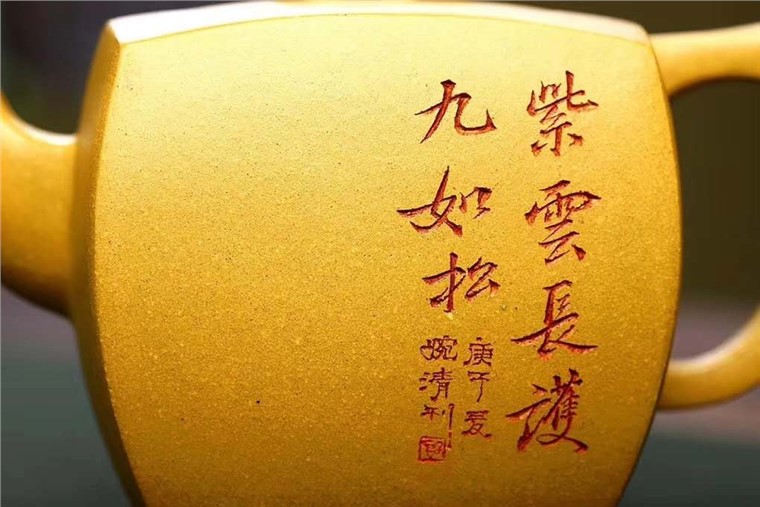 紫雲長護
九如松
庚子夏
婉清刻